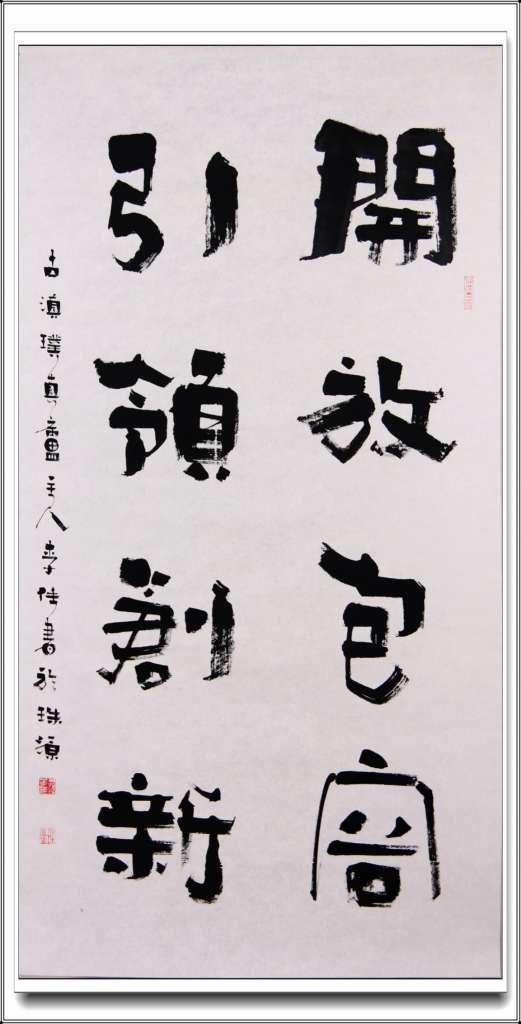 開放包容
引領創新
古滇璞真廬主人李仕書於珠源